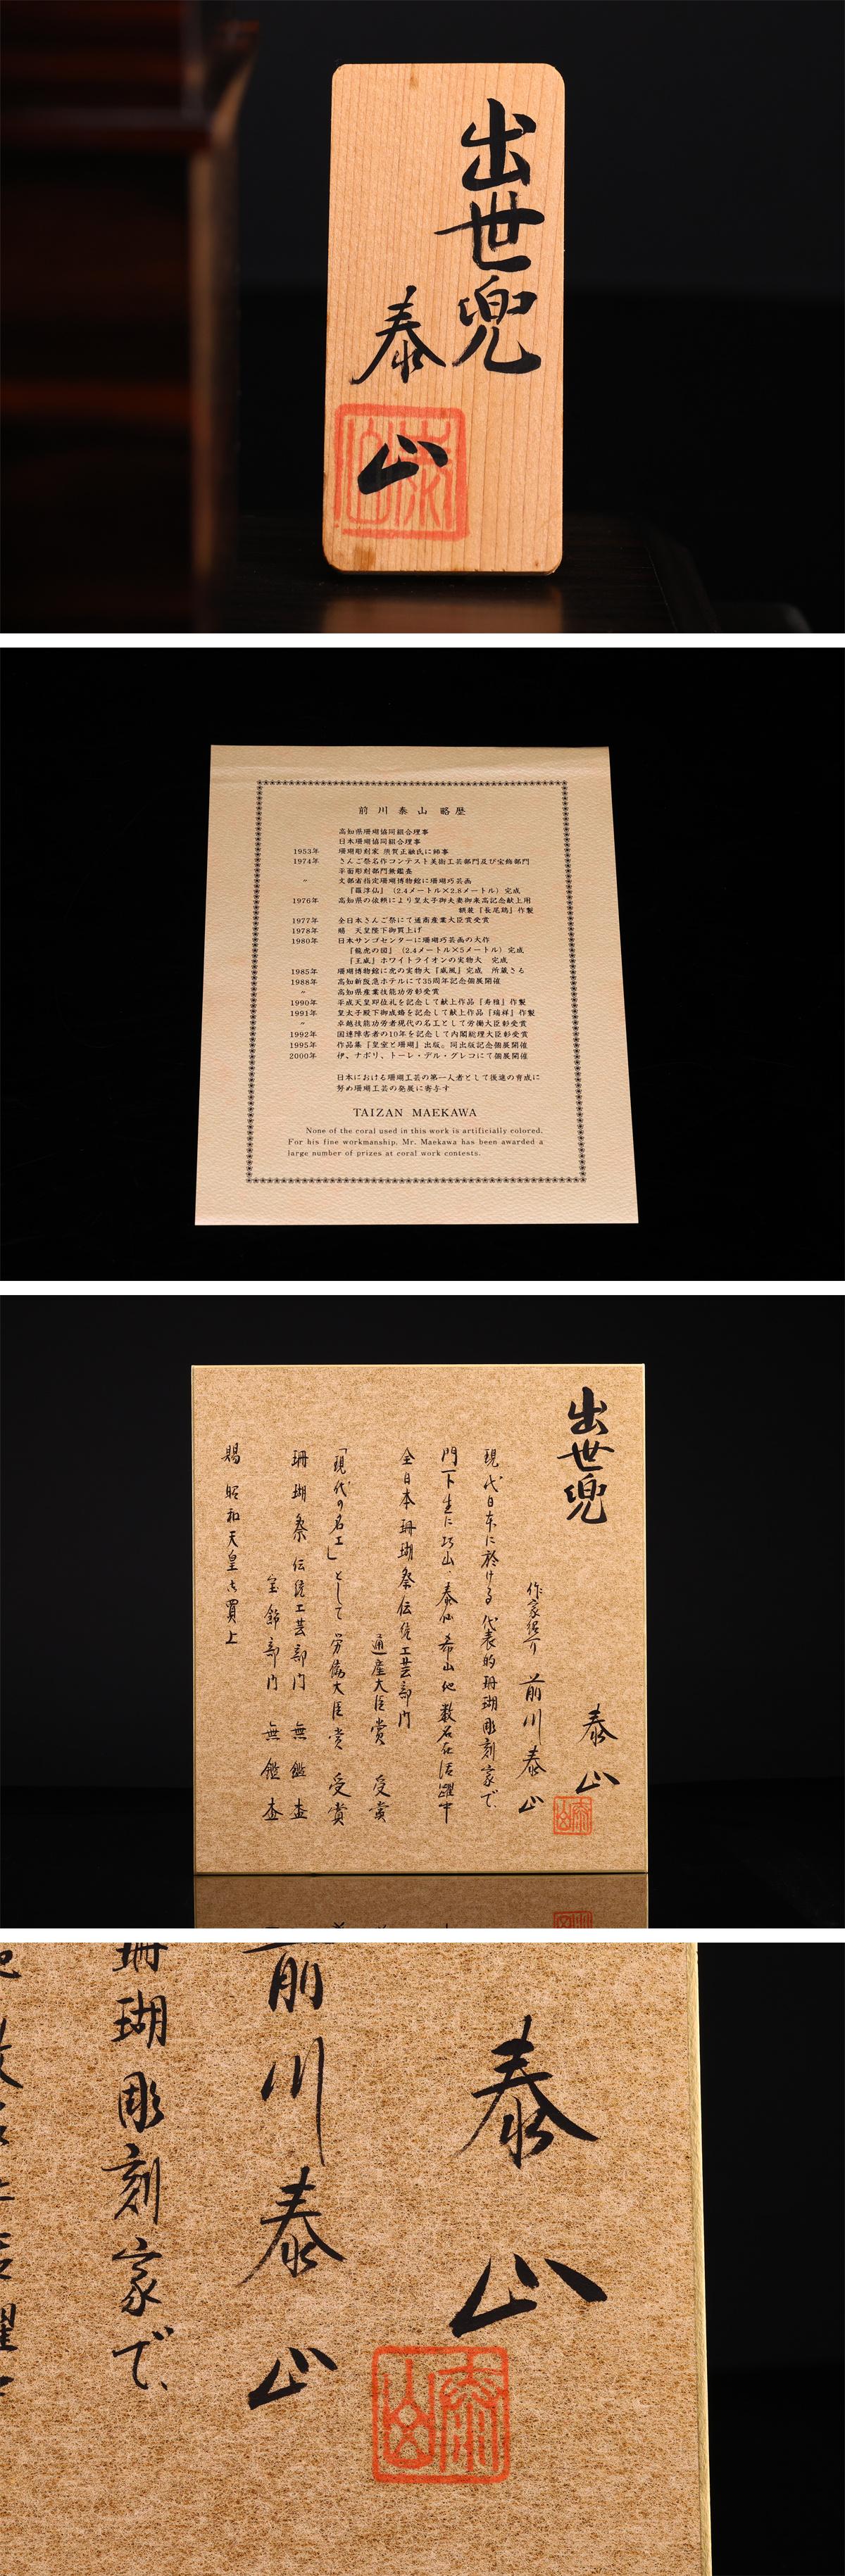 出世兜
泰山
泰山
前川泰山略歴
高知県珊瑚協同組合理事
日本珊瑚協同組合理事
1953年 珊瑚彫刻家 須賀正融氏に師事
1974年 さんご祭名作コンテスト美術工芸部門及び宝飾部門
平面彫刻部門無鑑査
〃 文部省指定珊瑚博物館に珊瑚巧芸画
『羅浮仏』(2.4メートル×2.8メートル)完成
1976年 高知県の依頼により皇太子御夫妻御来高記念献上用
額装『長尾鶏』作製
1977年 全日本さんご祭にて通商産業大臣賞受賞
1978年 賜 天皇陛下御買上げ
1980年 日本サンゴセンターに珊瑚巧芸画の大作
『龍虎の図』(2.4メートル×5メートル)完成
『王威』ホワイトライオンの実物大 完成
1985年 珊瑚博物館に虎の実物大『威風』完成 所蔵さる
1988年 高知新阪急ホテルにて35周年記念個展開催
〃 高知県産業技能功労彰受賞
1990年 平成天皇即位礼を記念して献上作品『寿種』作製
1991年 皇太子殿下御成婚を記念して献上作品『瑞祥』作製
〃 卓越技能功労者現代の名工として労働大臣彰受賞
1992年 国連障害者の10年を記念して内閣総理大臣彰受賞
1995年 作品集『皇室と珊瑚』出版。同出版記念個展開催
2000年 伊、ナポリ、トーレ・デル・グレコにて個展開催
日本における珊瑚工芸の第一人者として後進の育成に
努め珊瑚工芸の発展に寄与す
TAIZAN MAEKAWA
None of the coral used in this work is artificially colored.
For his fine workmanship, Mr. Maekawa has been awarded a
large number of prizes at coral work contests.
出世兜
泰山
泰山
作家紹介 前川泰山
現代日本に於ける代表的珊瑚彫刻家で、
門下生に巧山・泰仙・希山他数名在活躍中
全日本珊瑚祭伝統工芸部門
通産大臣賞 受賞
「現代の名工」として労働大臣賞 受賞
珊瑚祭伝統工芸部門 無鑑査
宝飾部門 無鑑査
賜 昭和天皇御買上
泰山
泰山
前川泰山
珊瑚彫刻家で、